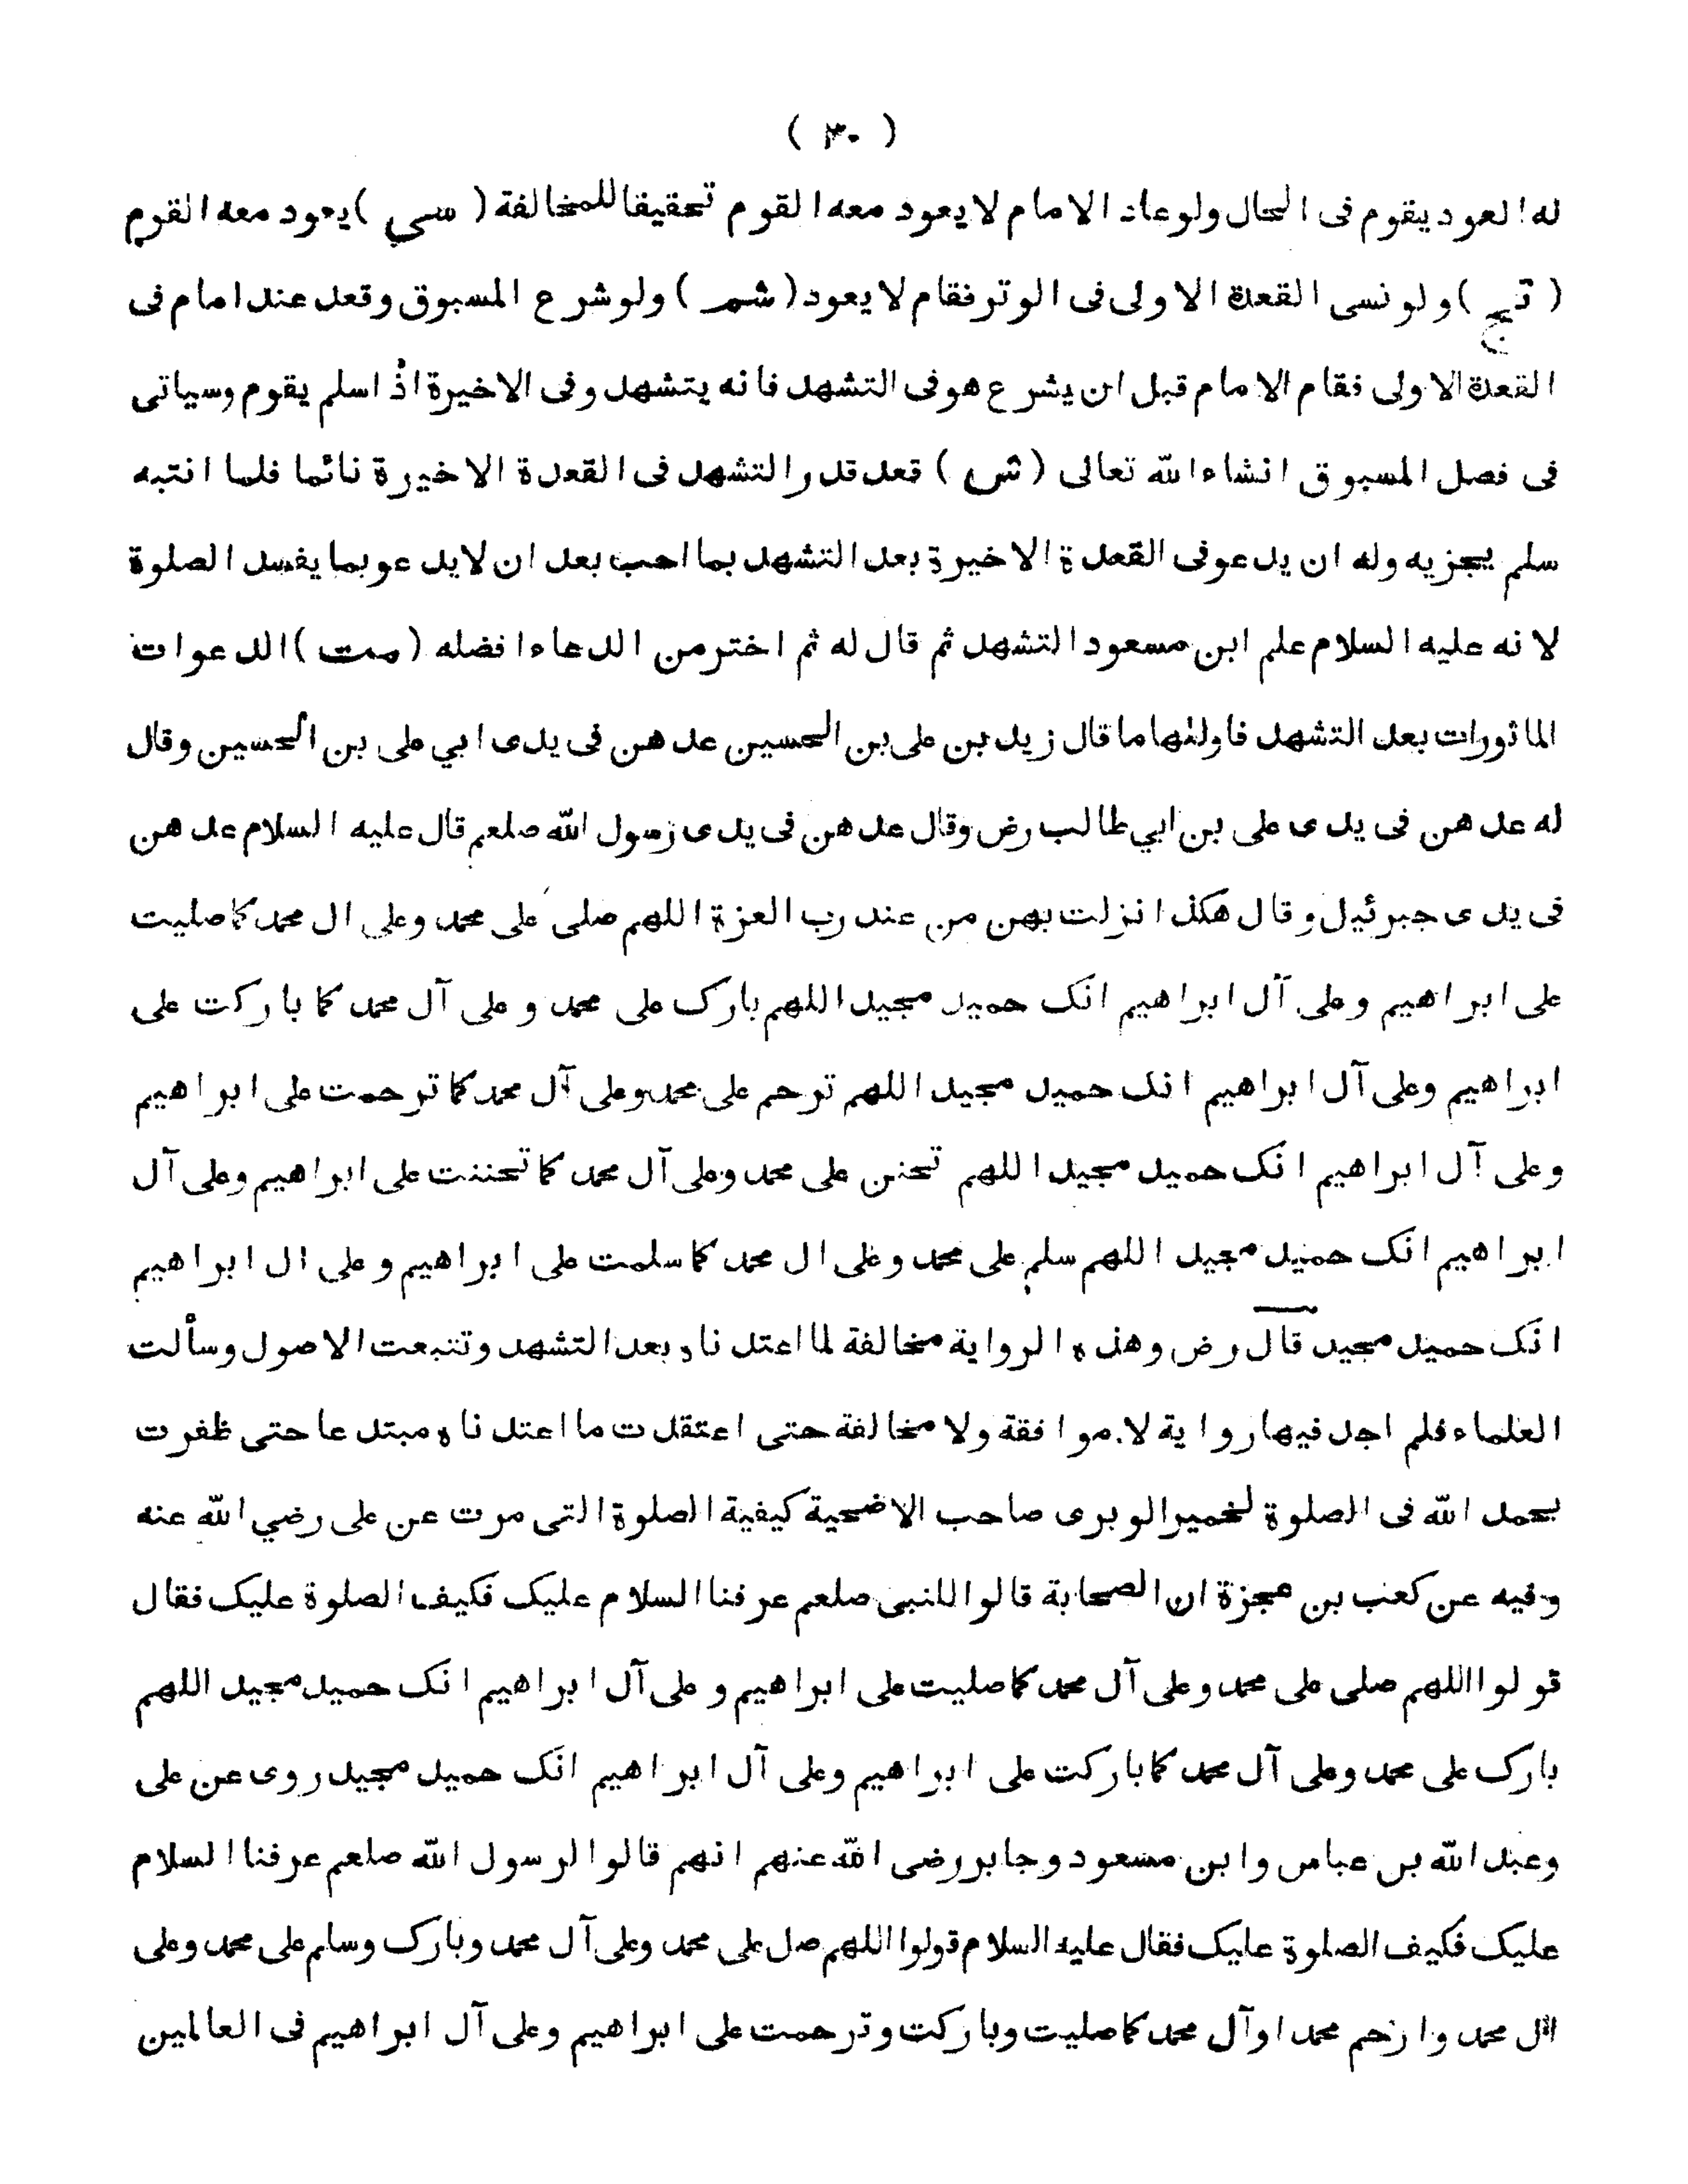 ( ٣٠ )
له العود يقوم فى الحال ولو عاد الامام لا يعود معه القوم تحقيقا للمخالفة ( سى ) يعود معه القوم
( تج ) ولو نسى القعدة الاولى فى الوتر فقام لا يعود ( شم ) ولو شرع المسبوق وقعد عند امام فى
القعدة الاولى فقام الامام قبل ان يشرع هو فى التشهد فانه يتشهد وفى الاخيرة اذا سلم يقوم وسياتى
فى فصل المسبوق انشاء الله تعالى ( ش ) قعد قدر التشهد فى القعدة الاخيرة نائما فلما انتبه
سلم يجزيه وله ان يدعو فى القعدة الاخيرة بعد التشهد بما احب بعد ان لا يدعو بما يفسد الصلوة
لانه عليه السلام علم ابن مسعود التشهد ثم قال له ثم اختر من الدعاء افضله ( مت ) الدعوات
الماثورات بعد التشهد فاولٰها ما قال زيد بن على بن الحسين عدهن فى يدى ابي على بن الحسين وقال
له عدهن فى يدى على بن ابي طالب رض وقال عدهن فى يدى رسول الله صلعم قال عليه السلام عدهن
فى يدى جبرئيل وقال هكذا نزلت بهن من عند رب العزة اللهم صلى على محمد وعلى ال محمد كما صليت
على ابراهيم وعلى آل ابراهيم انك حميد مجيد اللهم بارك على محمد وعلى آل محمد كما باركت على
ابراهيم وعلى آل ابراهيم انك حميد مجيد اللهم ترحم على محمد وعلى آل محمد كما ترحمت على ابراهيم
وعلى آل ابراهيم انك حميد مجيد اللهم تحنن على محمد وعلى آل محمد كما تحننت على ابراهيم وعلى آل
ابراهيم انك حميد مجيد اللهم سلم على محمد وعلى ال محمد كما سلمت على ابراهيم وعلى ال ابراهيم
انك حميد مجيد قال رض وهذه الرواية مخالفة لما اعتدناه بعد التشهد وتتبعت الاصول وسألت
العلماء فلم اجد فيها رواية لا موافقة ولا مخالفة حتى اعتقدت ما اعتدناه مبتدعا حتى ظفرت
بحمد الله فى الصلوة لخمير الوبرى صاحب الاضحية كيفية الصلوة التى مرت عن على رضي الله عنه
وفيه عن كعب بن عجزة ان الصحابة قالوا للنبى صلعم عرفنا السلام عليك فكيف الصلوة عليك فقال
قولوا اللهم صلى على محمد وعلى آل محمد كما صليت على ابراهيم وعلى آل ابراهيم انك حميد مجيد اللهم
بارك على محمد وعلى آل محمد كما باركت على ابراهيم وعلى آل ابراهيم انك حميد مجيد روى عن على
وعبد الله بن عباس وابن مسعود وجابر رضى الله عنهم انهم قالوا لرسول الله صلعم عرفنا السلام
عليك فكيف الصلوة عليك فقال عليه السلام قولوا اللهم صل على محمد وعلى آل محمد وبارك وسلم على محمد وعلى
ال محمد وارحم محمدا وآل محمد كما صليت وباركت وترحمت على ابراهيم وعلى آل ابراهيم فى العالمين